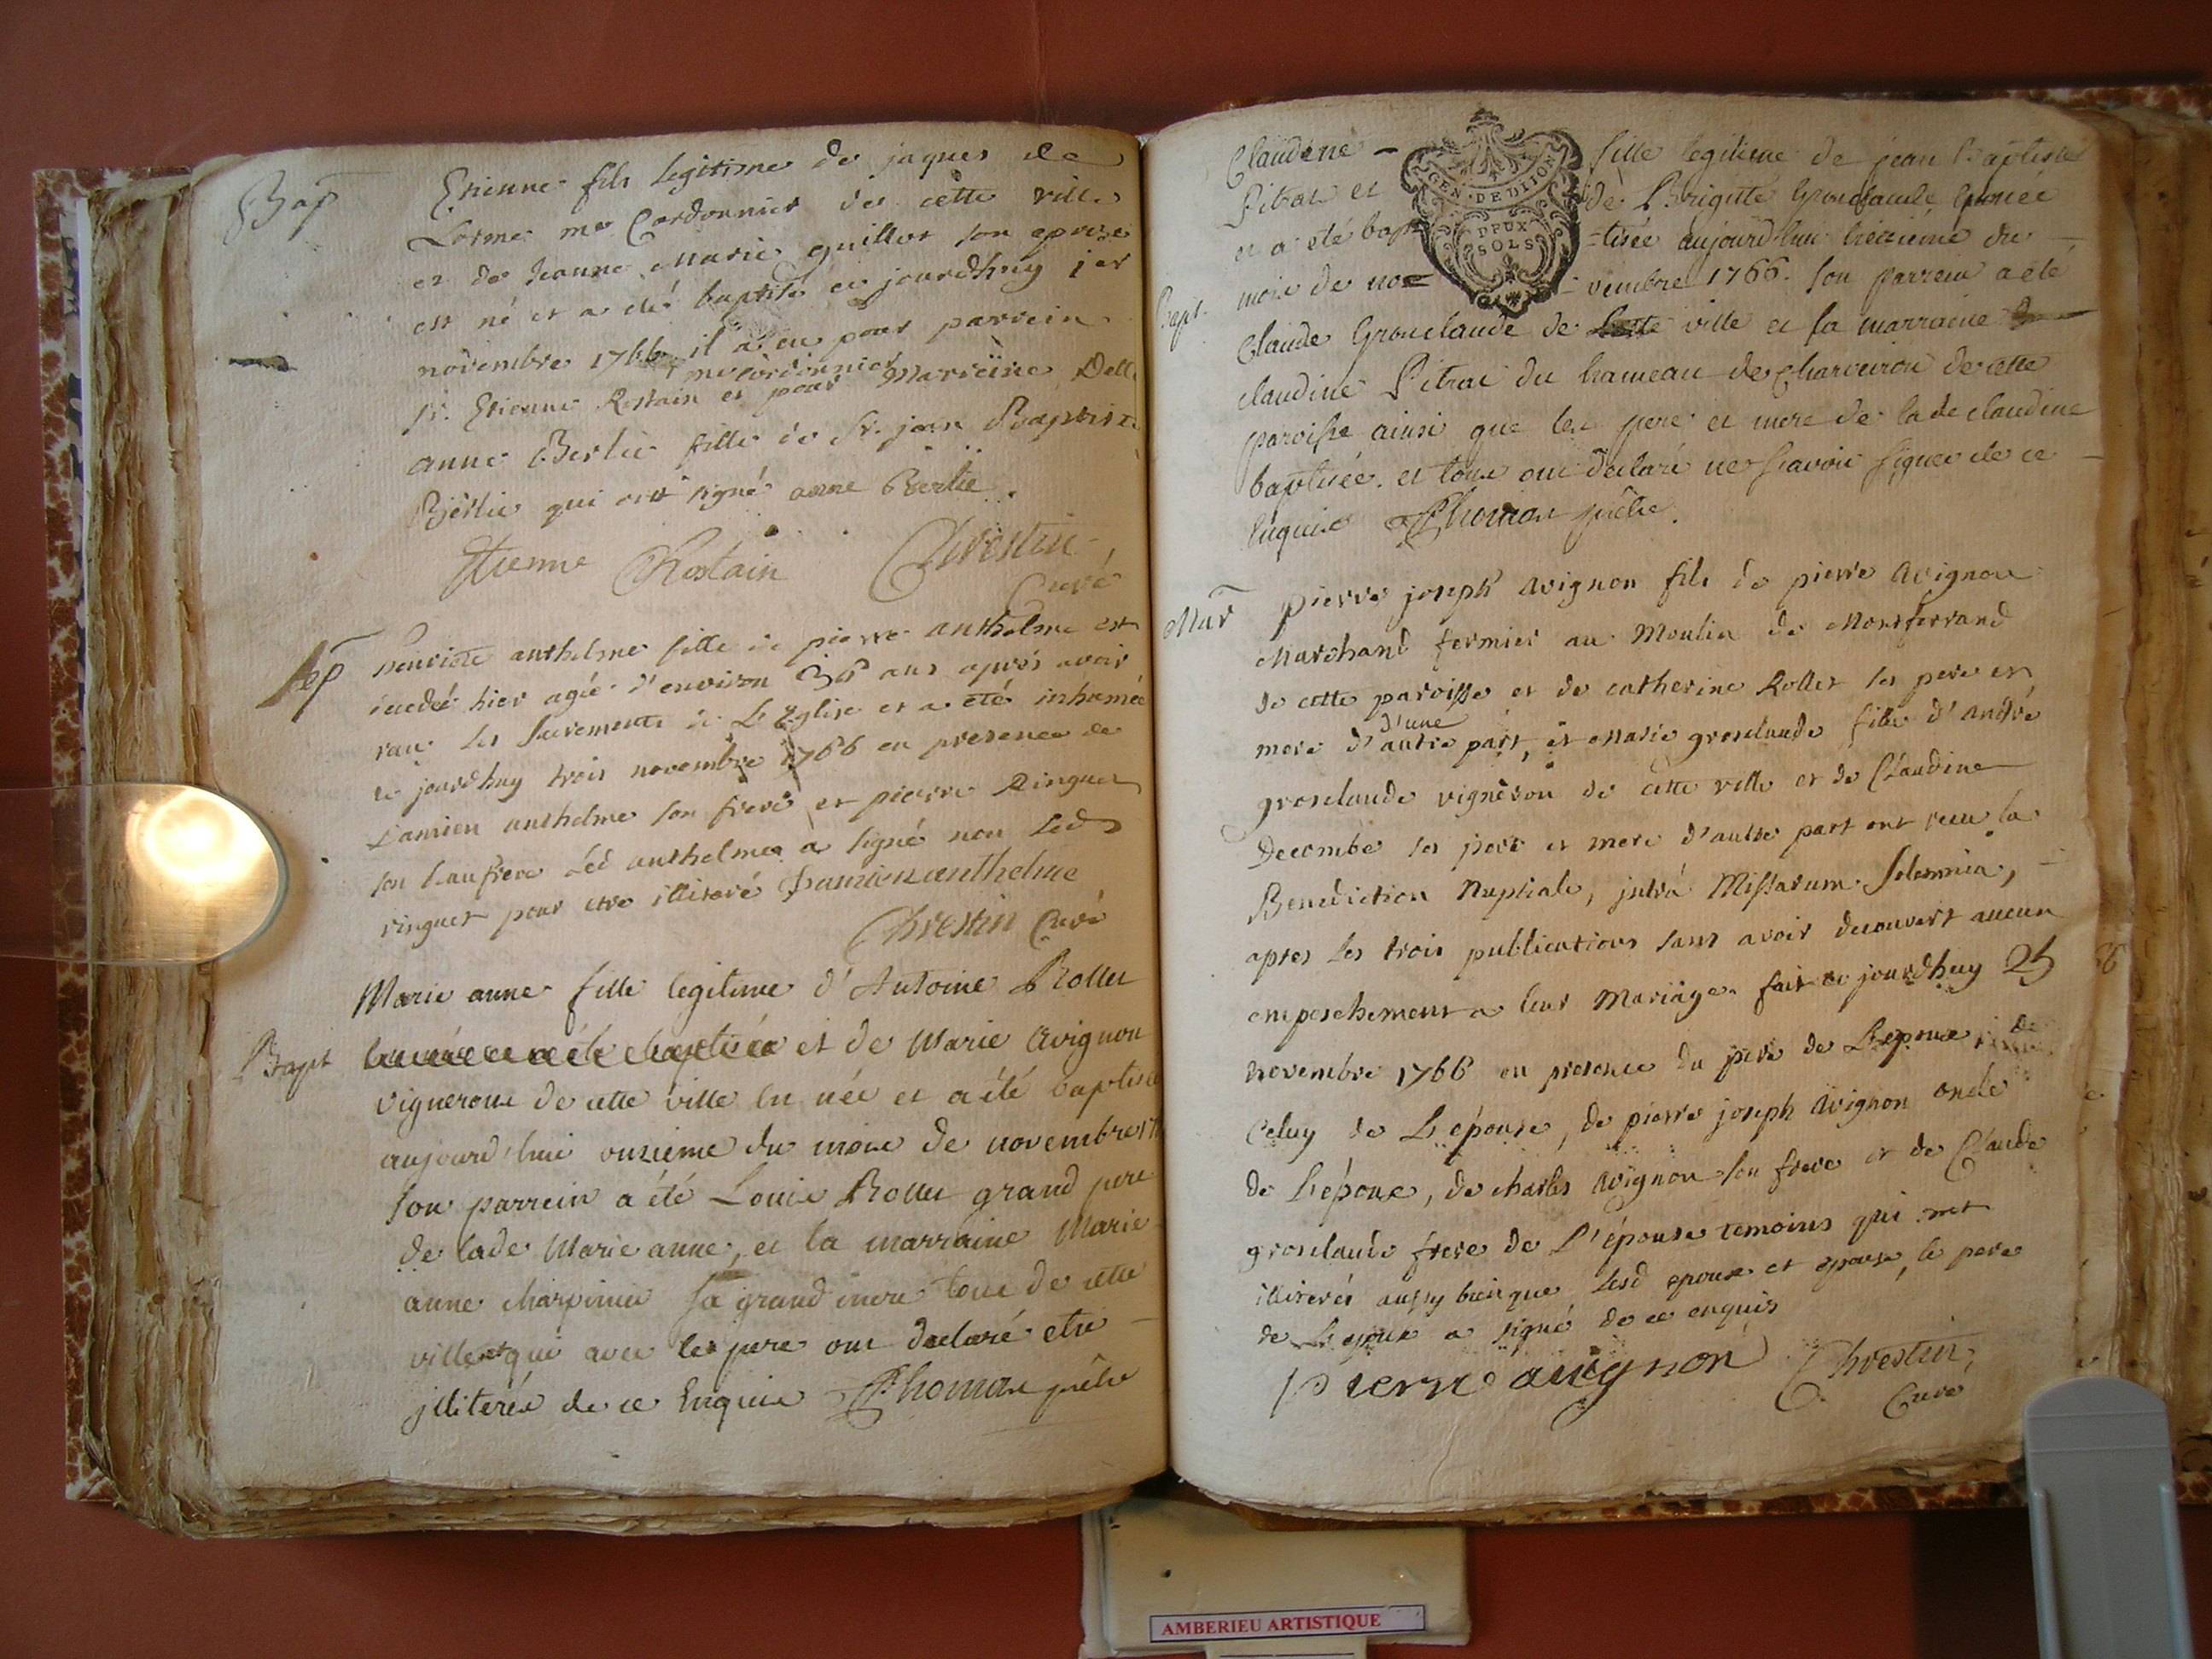 Bap
Etienne fils legitime de jaques de
Lorme me Cordonnier de cette ville
et de jeanne Marie guillot son epouse
est né et a eté baptisé ce jourdhuy 1er
novembre 1766 il a eu pour parrein
sr. Etienne Rostain me cordonnier et pour Marreine Delle
anne Berlie fille de sr. jean Baptiste
Berlie qui ont signé anne Berlie
Etienne Rostain Chrestin
Curé
Sep
henriete anthelme fille de pierre anthelme est
decedée hier agée d'environ 36 ans aprés avoir
les Sacrements de L'Eglise et a eté inhumée
ce jourdhuy trois novembre 1766 en presence de
Damien anthelme son frere et pierre Ringuet
son beaufrere Led anthelme a signé non Led
ringuet pour etre illiteré Damien anthelme
Chrestin Curé
Bapt
Marie anne fille legitime d'Antoine Rollet
et de Marie Avignon
vignerons de cette ville en née et a été baptisée
aujourd'hui onzieme du mois de novembre
son parrein a été Louis Rollet grand pere
de lade Marie anne, et la marraine Marie
anne charpinier sa grand mere tous de cette
ville et qui avec le pere ont declaré etre
illiterés de ce Enquis Thomas prêtre
Bapt.
Claudine - fille legitime de jean Baptiste
Pitrat et de Brigitte Grosclaude en née
et a eté bap =tisée aujourd'hui treizième du
mois de no= =vembre 1766. son parrein a eté
Claude Grosclaude de ville et sa marraine
claudine Pitrat du hameau de Chareviron de cette
paroisse ainsi que les pere et mere de lade claudine
baptisée. et tous ont declaré ne sçavoir signer de ce
enquis Thomas prêtre.
GEN. DE DIJON
DEUX
SOLS
Mar
pierre joseph Avignon fils de pierre Avignon
Marchand fermier au Moulin de Montferrand
de cette paroisse et de catherine Rollet ses pere et
mere d'une d'autre part, et Marie grosclaude fille d'André
grosclaude vigneron de cette ville et de Claudine
Decombe ses pere et mere d'autre part ont recu la
Benediction Nuptiale, jntrá Missarum Solemnia, -
apres les trois publications sans avoir decouvert aucun
empeschement a leur Mariage fait ce jourdhuy 25
novembre 1766 en presence du pere de L'epoux, de
Celuy de L'épouse, de pierre joseph Avignon oncle
de L'époux, de charles Avignon son frere et de Claude
grosclaude frere de L'épouse temoins qui sont
illiterés aussy bien que Lesd epoux et epouse, le pere
de L'epoux a signé de ce enquis
pierre avignon Chrestin,
Curé
AMBERIEU ARTISTIQUE